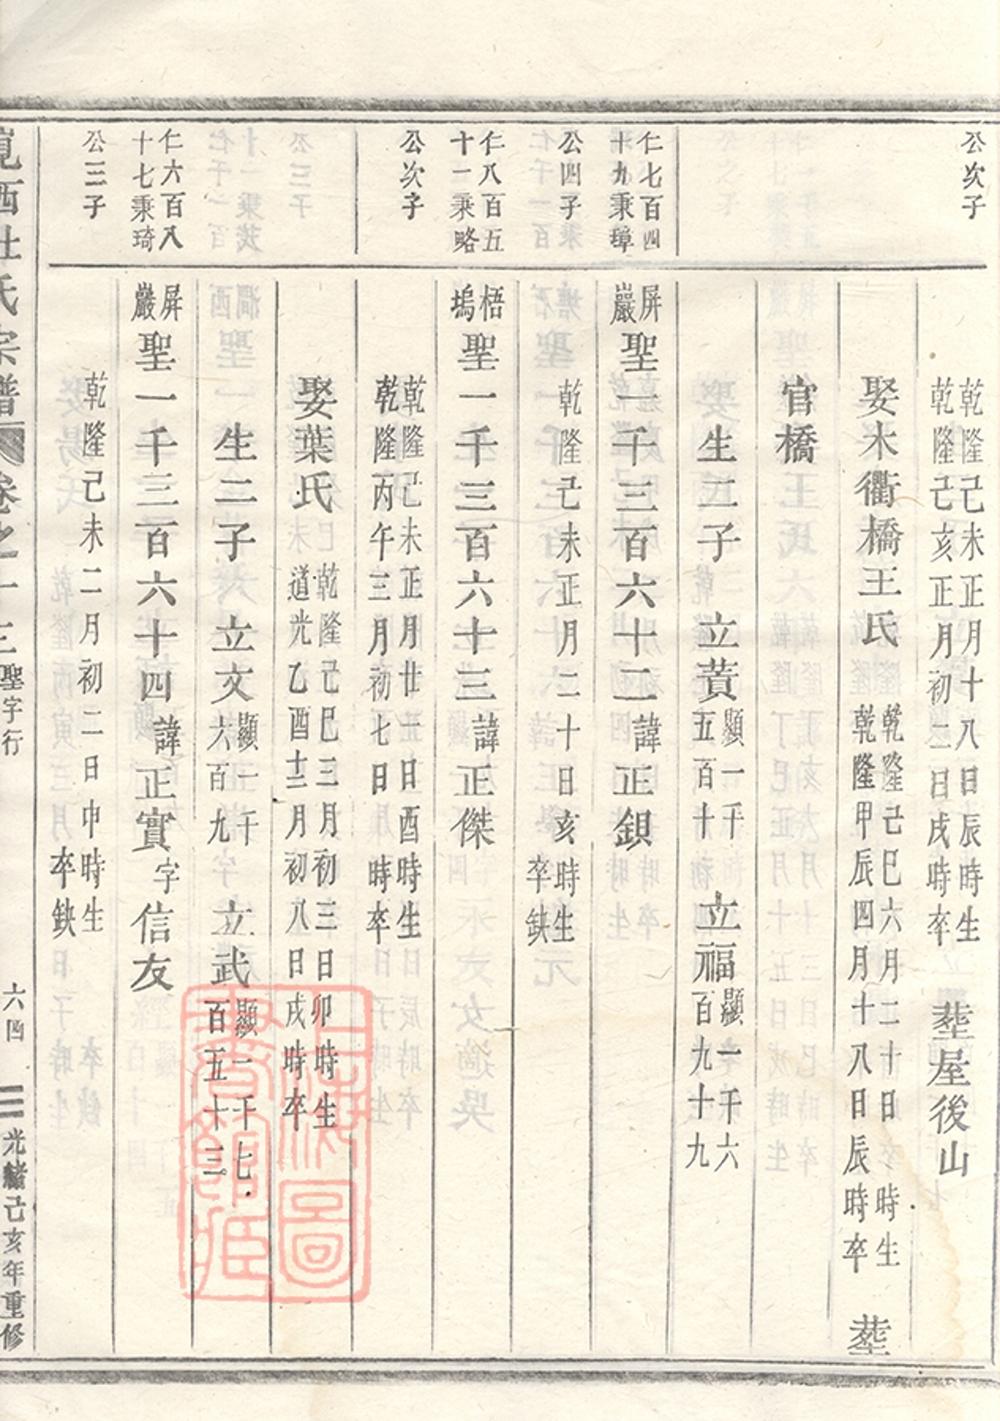 公次子
乾隆己未正月十八日辰時生
乾隆己亥正月初二日戌時卒
葬屋後山
娶木衢橋王氏
乾隆己巳六月二十日 時生
乾隆甲辰四月十八日辰時卒
葬
官橋
生二子
立蕡
顯一千
五百十
立福
顯一千六
百九十九
仁七百四
十九秉璋
公四子
屏
巖
聖一千三百六十二
諱
正鋇
乾隆己未正月二十日亥時生
卒缺
仁八百五
十一秉略
公次子
梧
塢
聖一千三百六十三
諱
正傑
乾隆己未正月廿一日酉時生
乾隆丙午三月初七日 時卒
娶葉氏
乾隆己巳三月初三日卯時生
道光乙酉十二月初八日戌時卒
生二子
立文
顯一千
六百九
立武
顯一千七
百五十三
仁六百八
十七秉琦
公三子
屏
巖
聖一千三百六十四
諱
正實
字
信友
乾隆己未二月初二日申時生
卒缺
西杜氏宗譜
卷之十三
聖字行
六四
光緒己亥年重修
上海圖書館